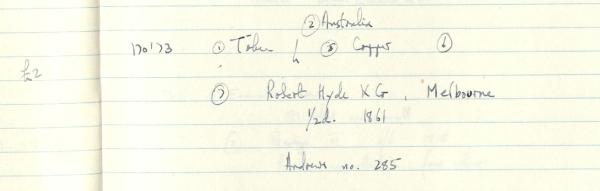 ② Australia
170173 ① Token ⑤ Copper ⑥
£2
⑦ Robert Hyde K G, Melbourne
1/2d. 1861
Andrews no. 285